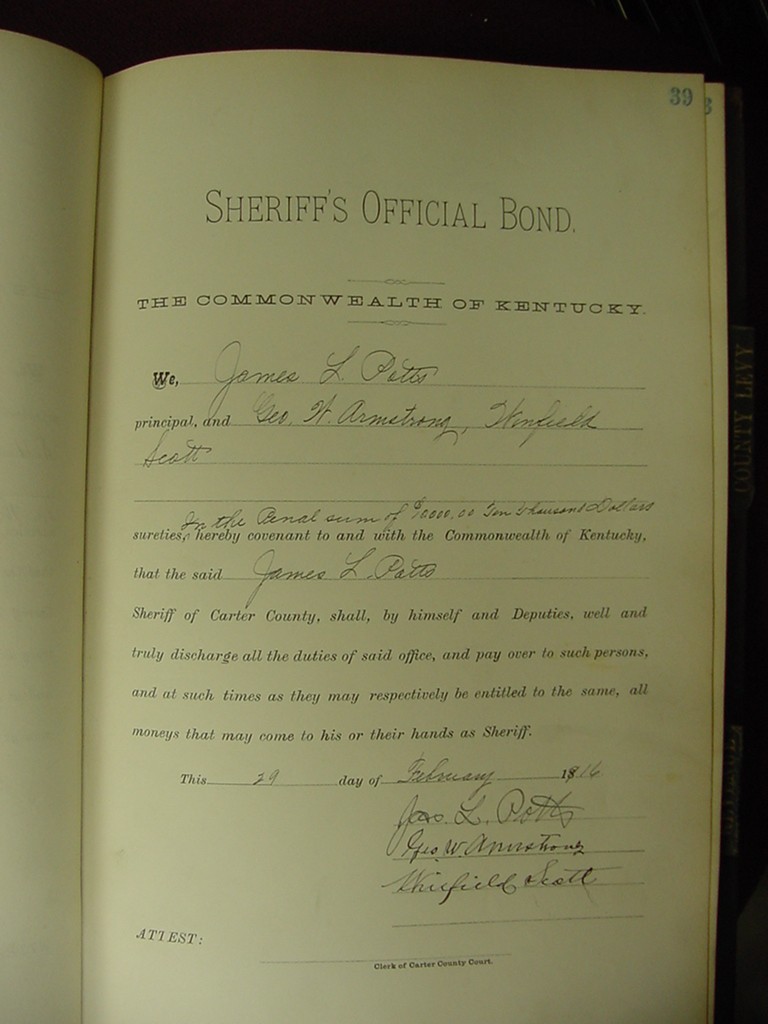 39
SHERIFF'S OFFICIAL BOND.
THE COMMONWEALTH OF KENTUCKY.
We, James L. Potts
principal, and Geo. W. Armstrong, Winfield
Scott
In the Penal sum of $10000.00 Ten Thousand Dollars
sureties, hereby covenant to and with the Commonwealth of Kentucky,
that the said James L. Potts
Sheriff of Carter County, shall, by himself and Deputies, well and
truly discharge all the duties of said office, and pay over to such persons,
and at such times as they may respectively be entitled to the same, all
moneys that may come to his or their hands as Sheriff.
This 29 day of February 1916
Jas. L. Potts
Geo. W. Armstrong
Winfield Scott
ATTEST:
Clerk of Carter County Court.
COUNTY LEVY